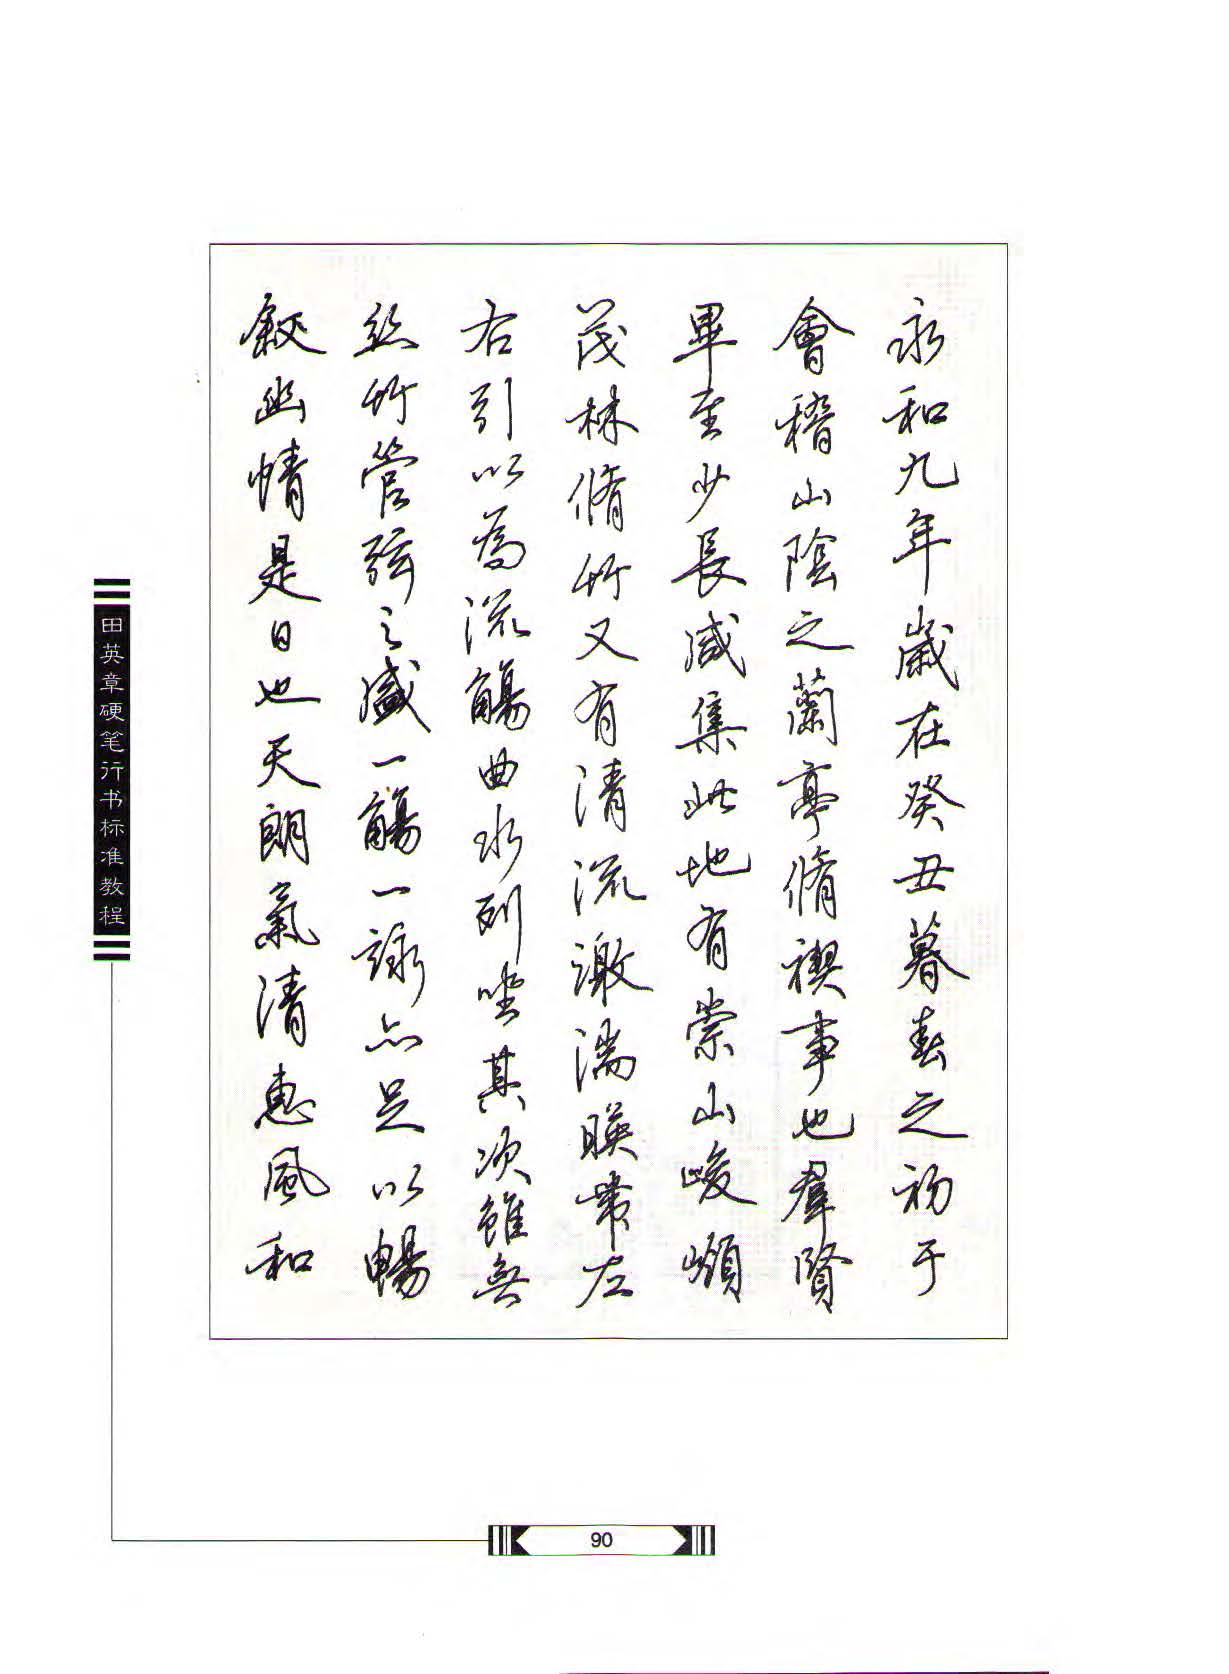 永和九年歲在癸丑暮春之初于
會稽山陰之蘭亭脩禊事也羣賢
畢至少長咸集此地有崇山峻嶺
茂林脩竹又有清流激湍暎帶左
右引以為流觴曲水列坐其次雖無
絲竹管弦之盛一觴一詠亦足以暢
敘幽情是日也天朗氣清惠風和
田英章硬笔行书标准教程
90